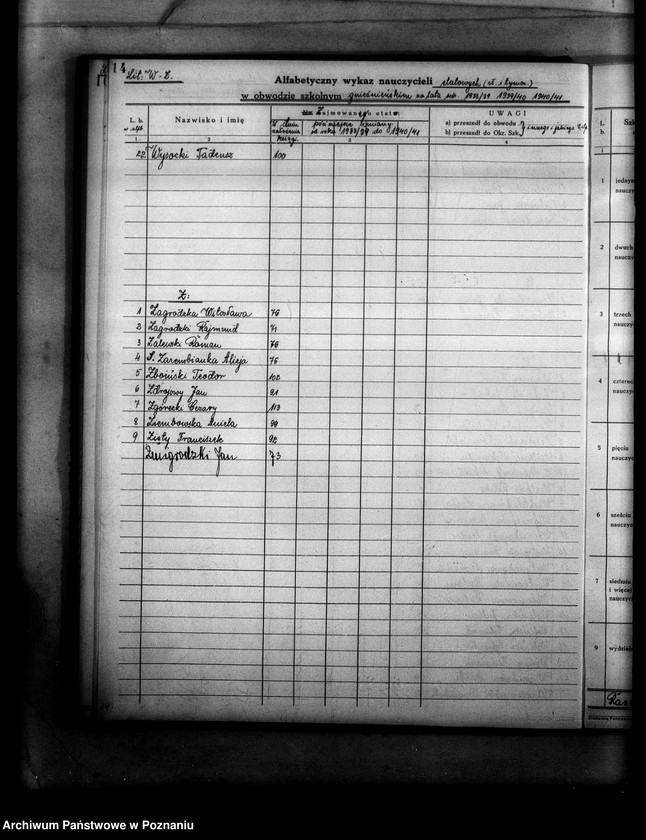 14
Lit. W - Z.
Alfabetyczny wykaz nauczycieli etatowych (st. i tymcz.)
w obwodzie szkolnym gnieźnieńskim na lata szk. 1938/39 1939/40 1940/41
L. b. Nazwisko i imię Zajmowanego etatu UWAGI
w dniu założenia księgi
późniejsze zmiany za rok 1938/39 do 1940/41
a) przeszedł do obwodu
b) przeszedł do Okr. Szk.
1 2 3 4
22 Wysocki Tadeusz 100
Z:
1 Zagrodzka Wiłosława 76
2 Zagrodzki Rajmund 71
3 Zalewski Roman 76
4 S. Zarembianka Alicja 76
5 Zboiński Teodor 102
6 Zdrojowy Jan 91
7 Zgórecki Cezary 113
8 Ziembowska Aniela 99
9 Zięty Franciszek 92
Żmigrodzki Jan 73
L. b.
1 jedno
nauczy
2 dwuch
nauczy
3 trzech
nauczyc
4 czterec
nauczyc
5 pięciu
nauczyc
6 sześciu
nauczyc
7 siedmiu
i więcej
nauczyc
9 wydziel
Archiwum Państwowe w Poznaniu